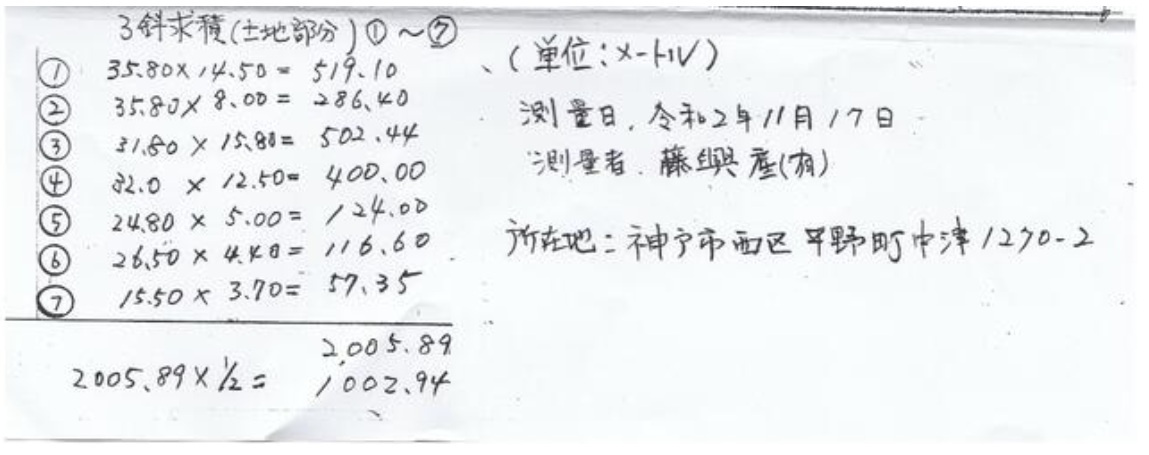 3斜求積(土地部分)①~⑦
① 35.80×14.50= 519.10
② 35.80×8.00= 286.40
③ 31.80×15.80= 502.44
④ 32.0×12.50= 400.00
⑤ 24.80×5.00= 124.00
⑥ 26.50×4.40= 116.60
⑦ 15.50×3.70= 57.35
2,005.89
2005.89×1/2= 1002.94
(単位:メートル)
測量日、令和2年11月17日
測量者、藤興産(有)
所在地:神戸市西区平野町中津1270-2